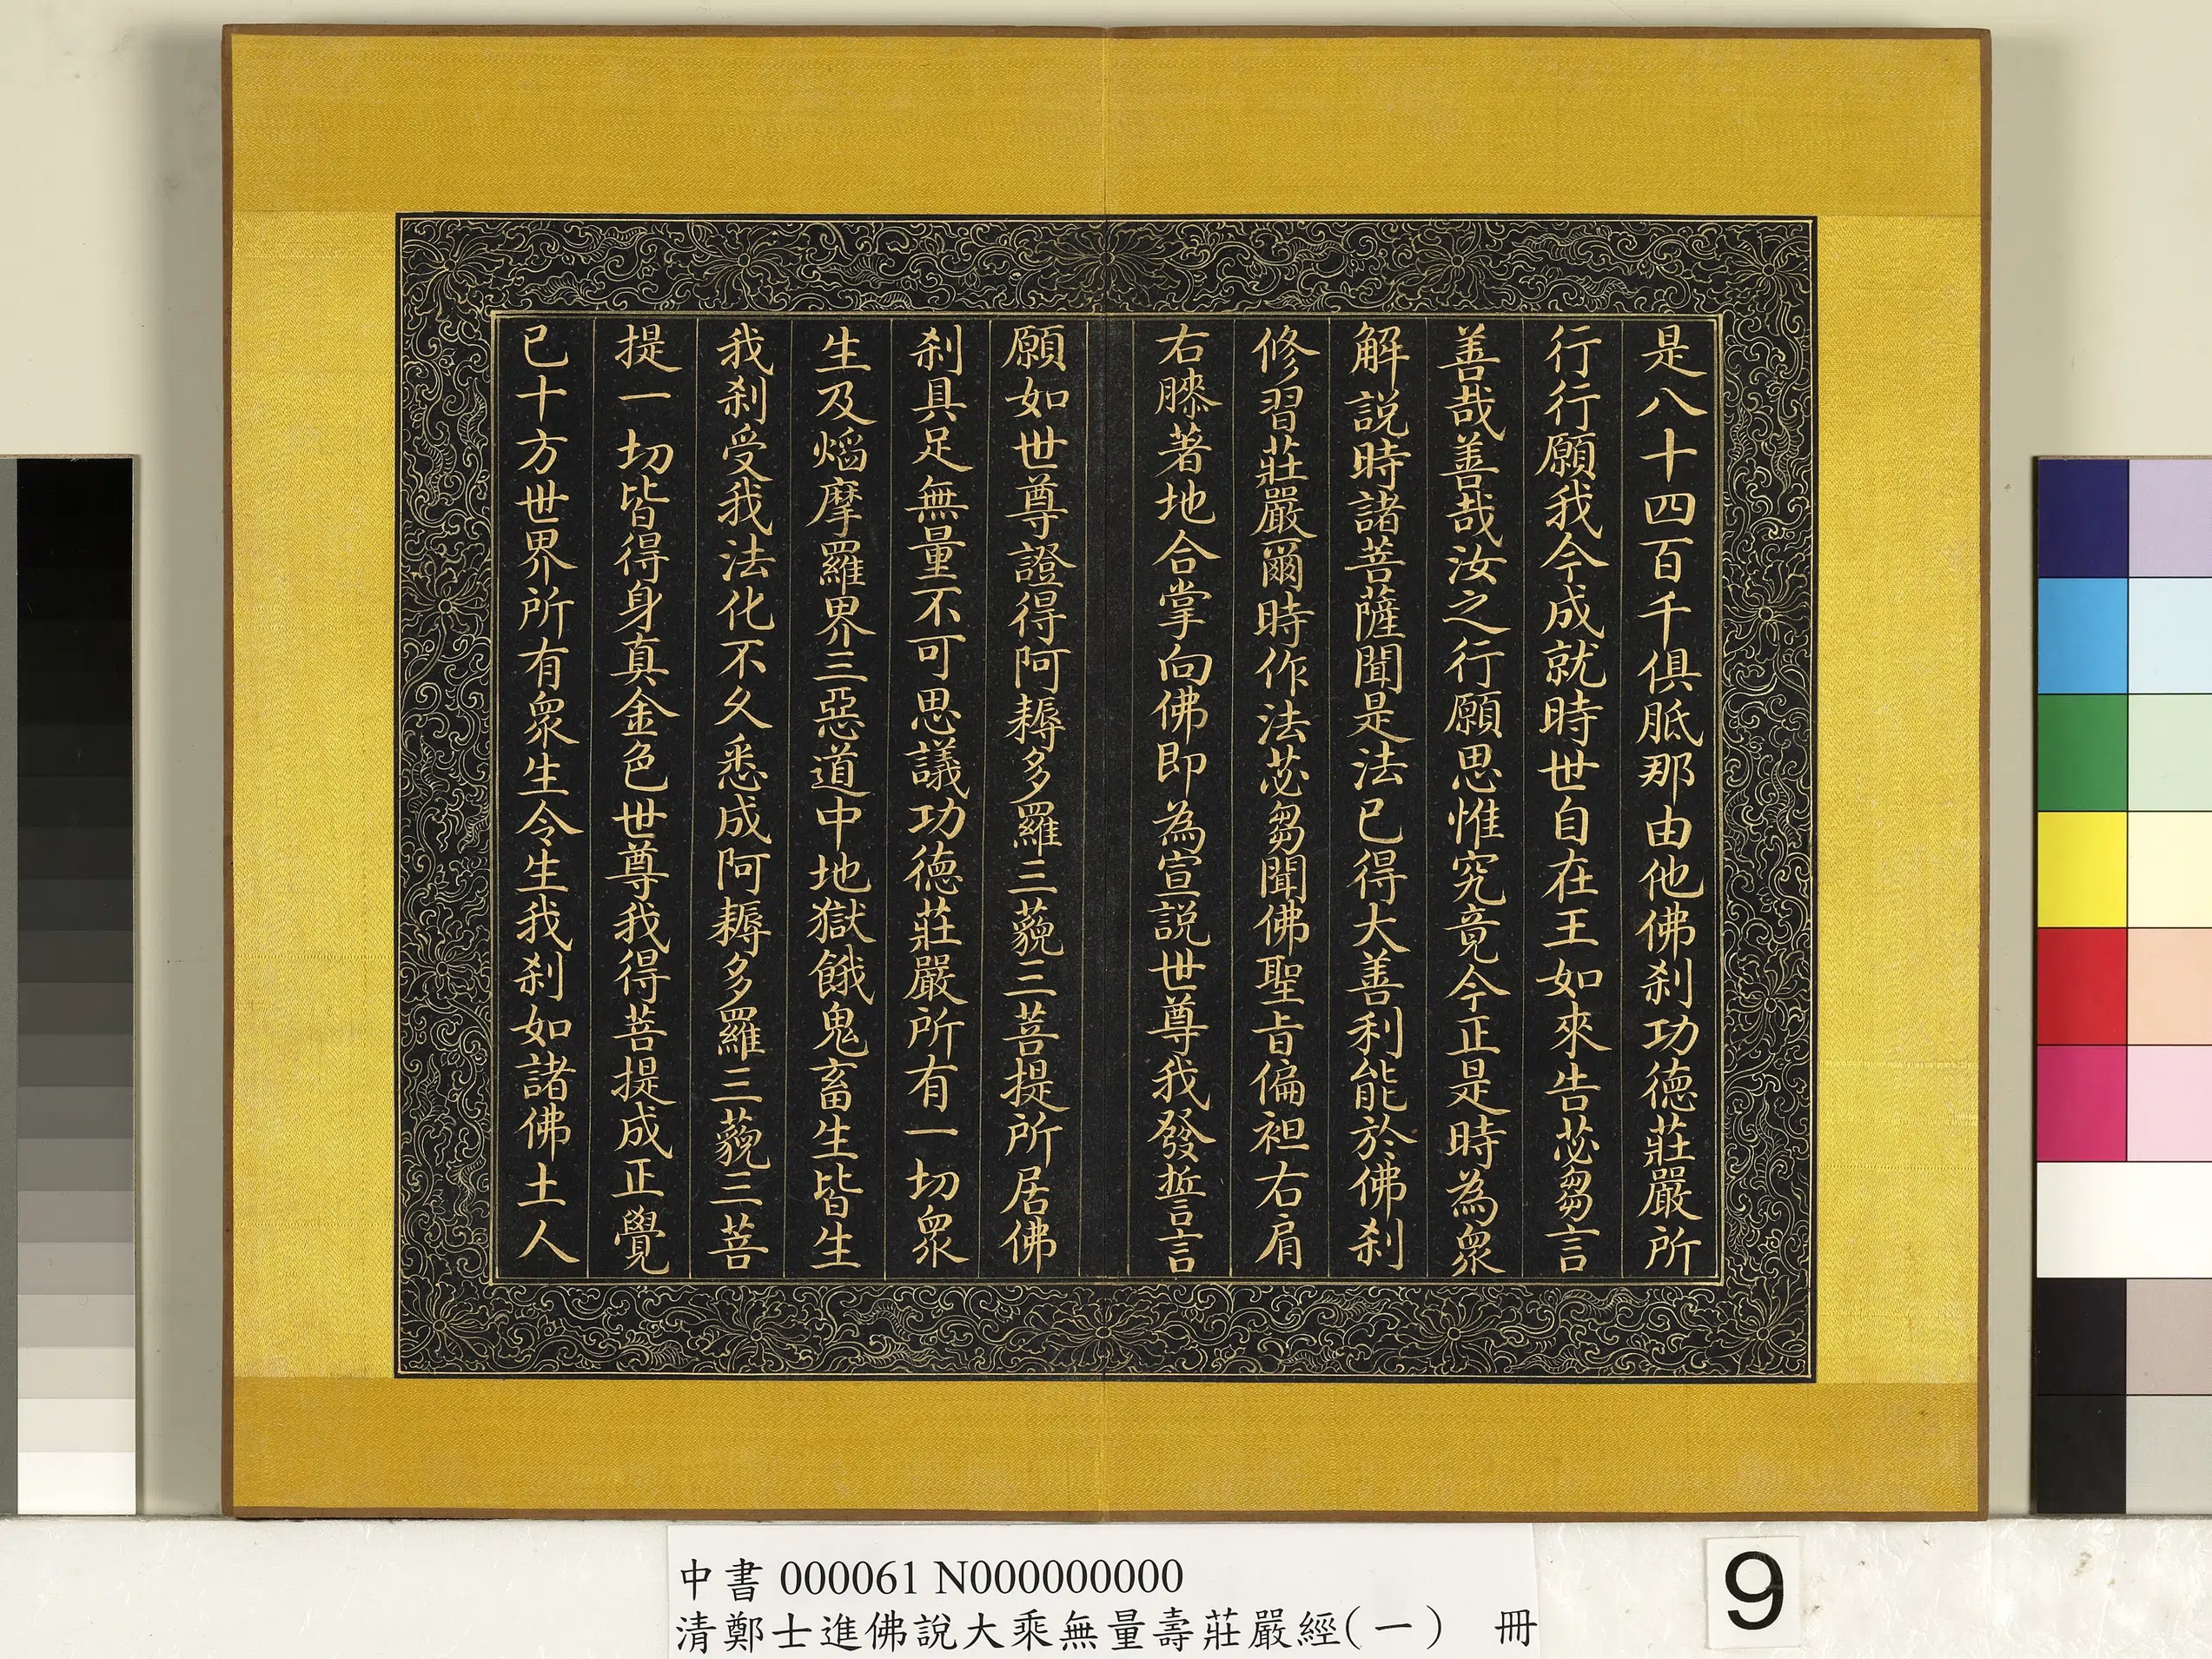 是八十四百千俱胝那由他佛刹功德莊嚴所
行行願我今成就時世自在王如來告苾芻言
善哉善哉汝之行願思惟究竟今正是時為眾
解説時諸菩薩聞是法已得大善利能於佛刹
修習莊嚴爾時作法苾芻聞佛聖旨偏袒右肩
右膝著地合掌向佛即為宣説世尊我發誓言
願如世尊證得阿耨多羅三藐三菩提所居佛
刹具足無量不可思議功德莊嚴所有一切眾
生及燄摩羅界三惡道中地獄餓鬼畜生皆生
我刹受我法化不久悉成阿耨多羅三藐三菩
提一切皆得身真金色世尊我得菩提成正覺
已十方世界所有眾生令生我刹如諸佛土人
中書 000061 N000000000
清鄭士進佛說大乘無量壽莊嚴經(一) 冊
9